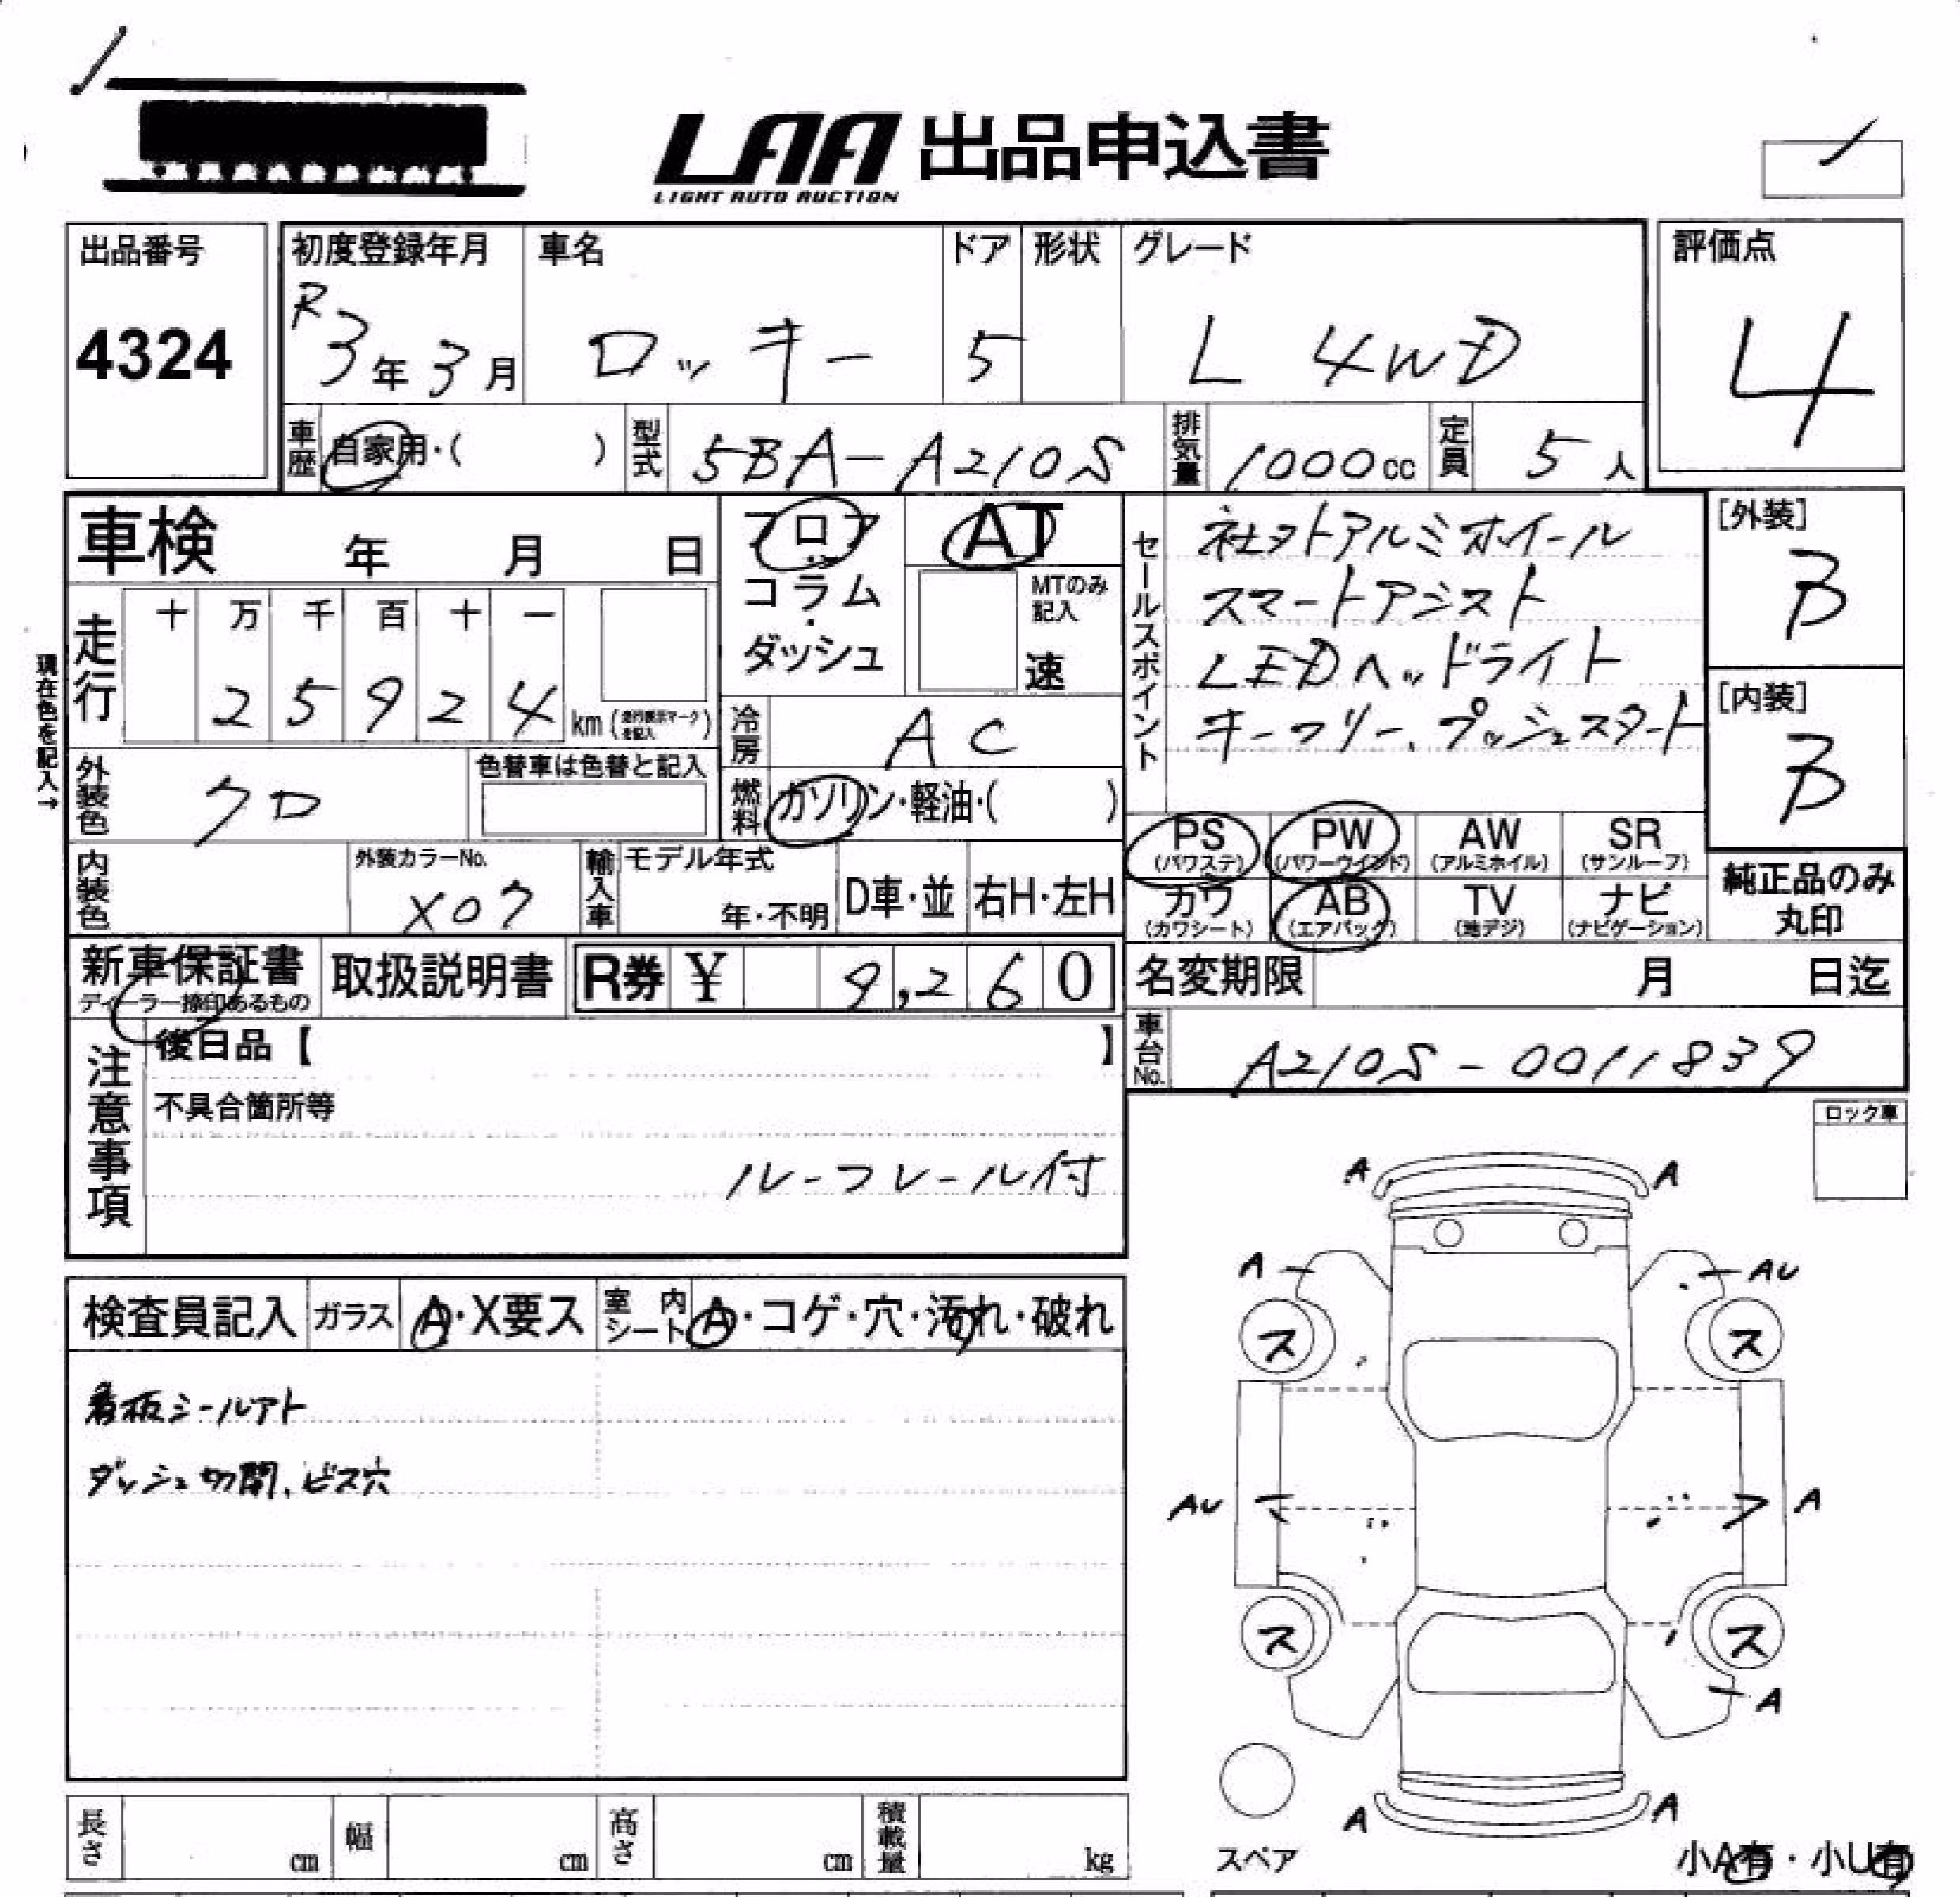 LAA 出品申込書
LIGHT AUTO AUCTION
出品番号
4324
初度登録年月
R3年3月
車名
ロッキー
ドア
5
形状
グレード
L 4WD
評価点
4
車歴
自家用・( )
型式
5BA-A210S
排気量
1000cc
定員
5人
車検 年 月 日
走行
十 万 千 百 十 一
2 5 9 2 4 km (走行表示マークを記入)
現在色を記入→
フロア
コラム・
ダッシュ
AT
MTのみ
記入
速
冷房
AC
燃料
ガソリン・軽油・( )
セールスポイント
社外アルミホイール
スマートアシスト
LEDヘッドライト
キーフリー、プッシュスタート
[外装]
B
[内装]
B
外装色
クロ
色替車は色替と記入
内装色
外装カラーNo.
X07
輸入車
モデル年式
年・不明
D車・並
右H・左H
PS
(パワステ)
PW
(パワーウインド)
AW
(アルミホイル)
SR
(サンルーフ)
カワ
(カワシート)
AB
(エアバック)
TV
(地デジ)
ナビ
(ナビゲーション)
純正品のみ
丸印
新車保証書
ディーラー捺印あるもの
取扱説明書
R券 ¥ 9,260
名変期限 月 日迄
注意事項
後日品【 】
不具合箇所等
ルーフレール付
車台No.
A210S-0011839
ロック車
検査員記入
ガラス
A・X要ス
室内シート
A・コゲ・穴・汚れ・破れ
看板シールアト
ダッシュ切開、ビス穴
A A
A AU
ス ス
AU A
ス ス
A
A A
スペア
小A有・小U有
長さ cm
幅 cm
高さ cm
積載量 kg